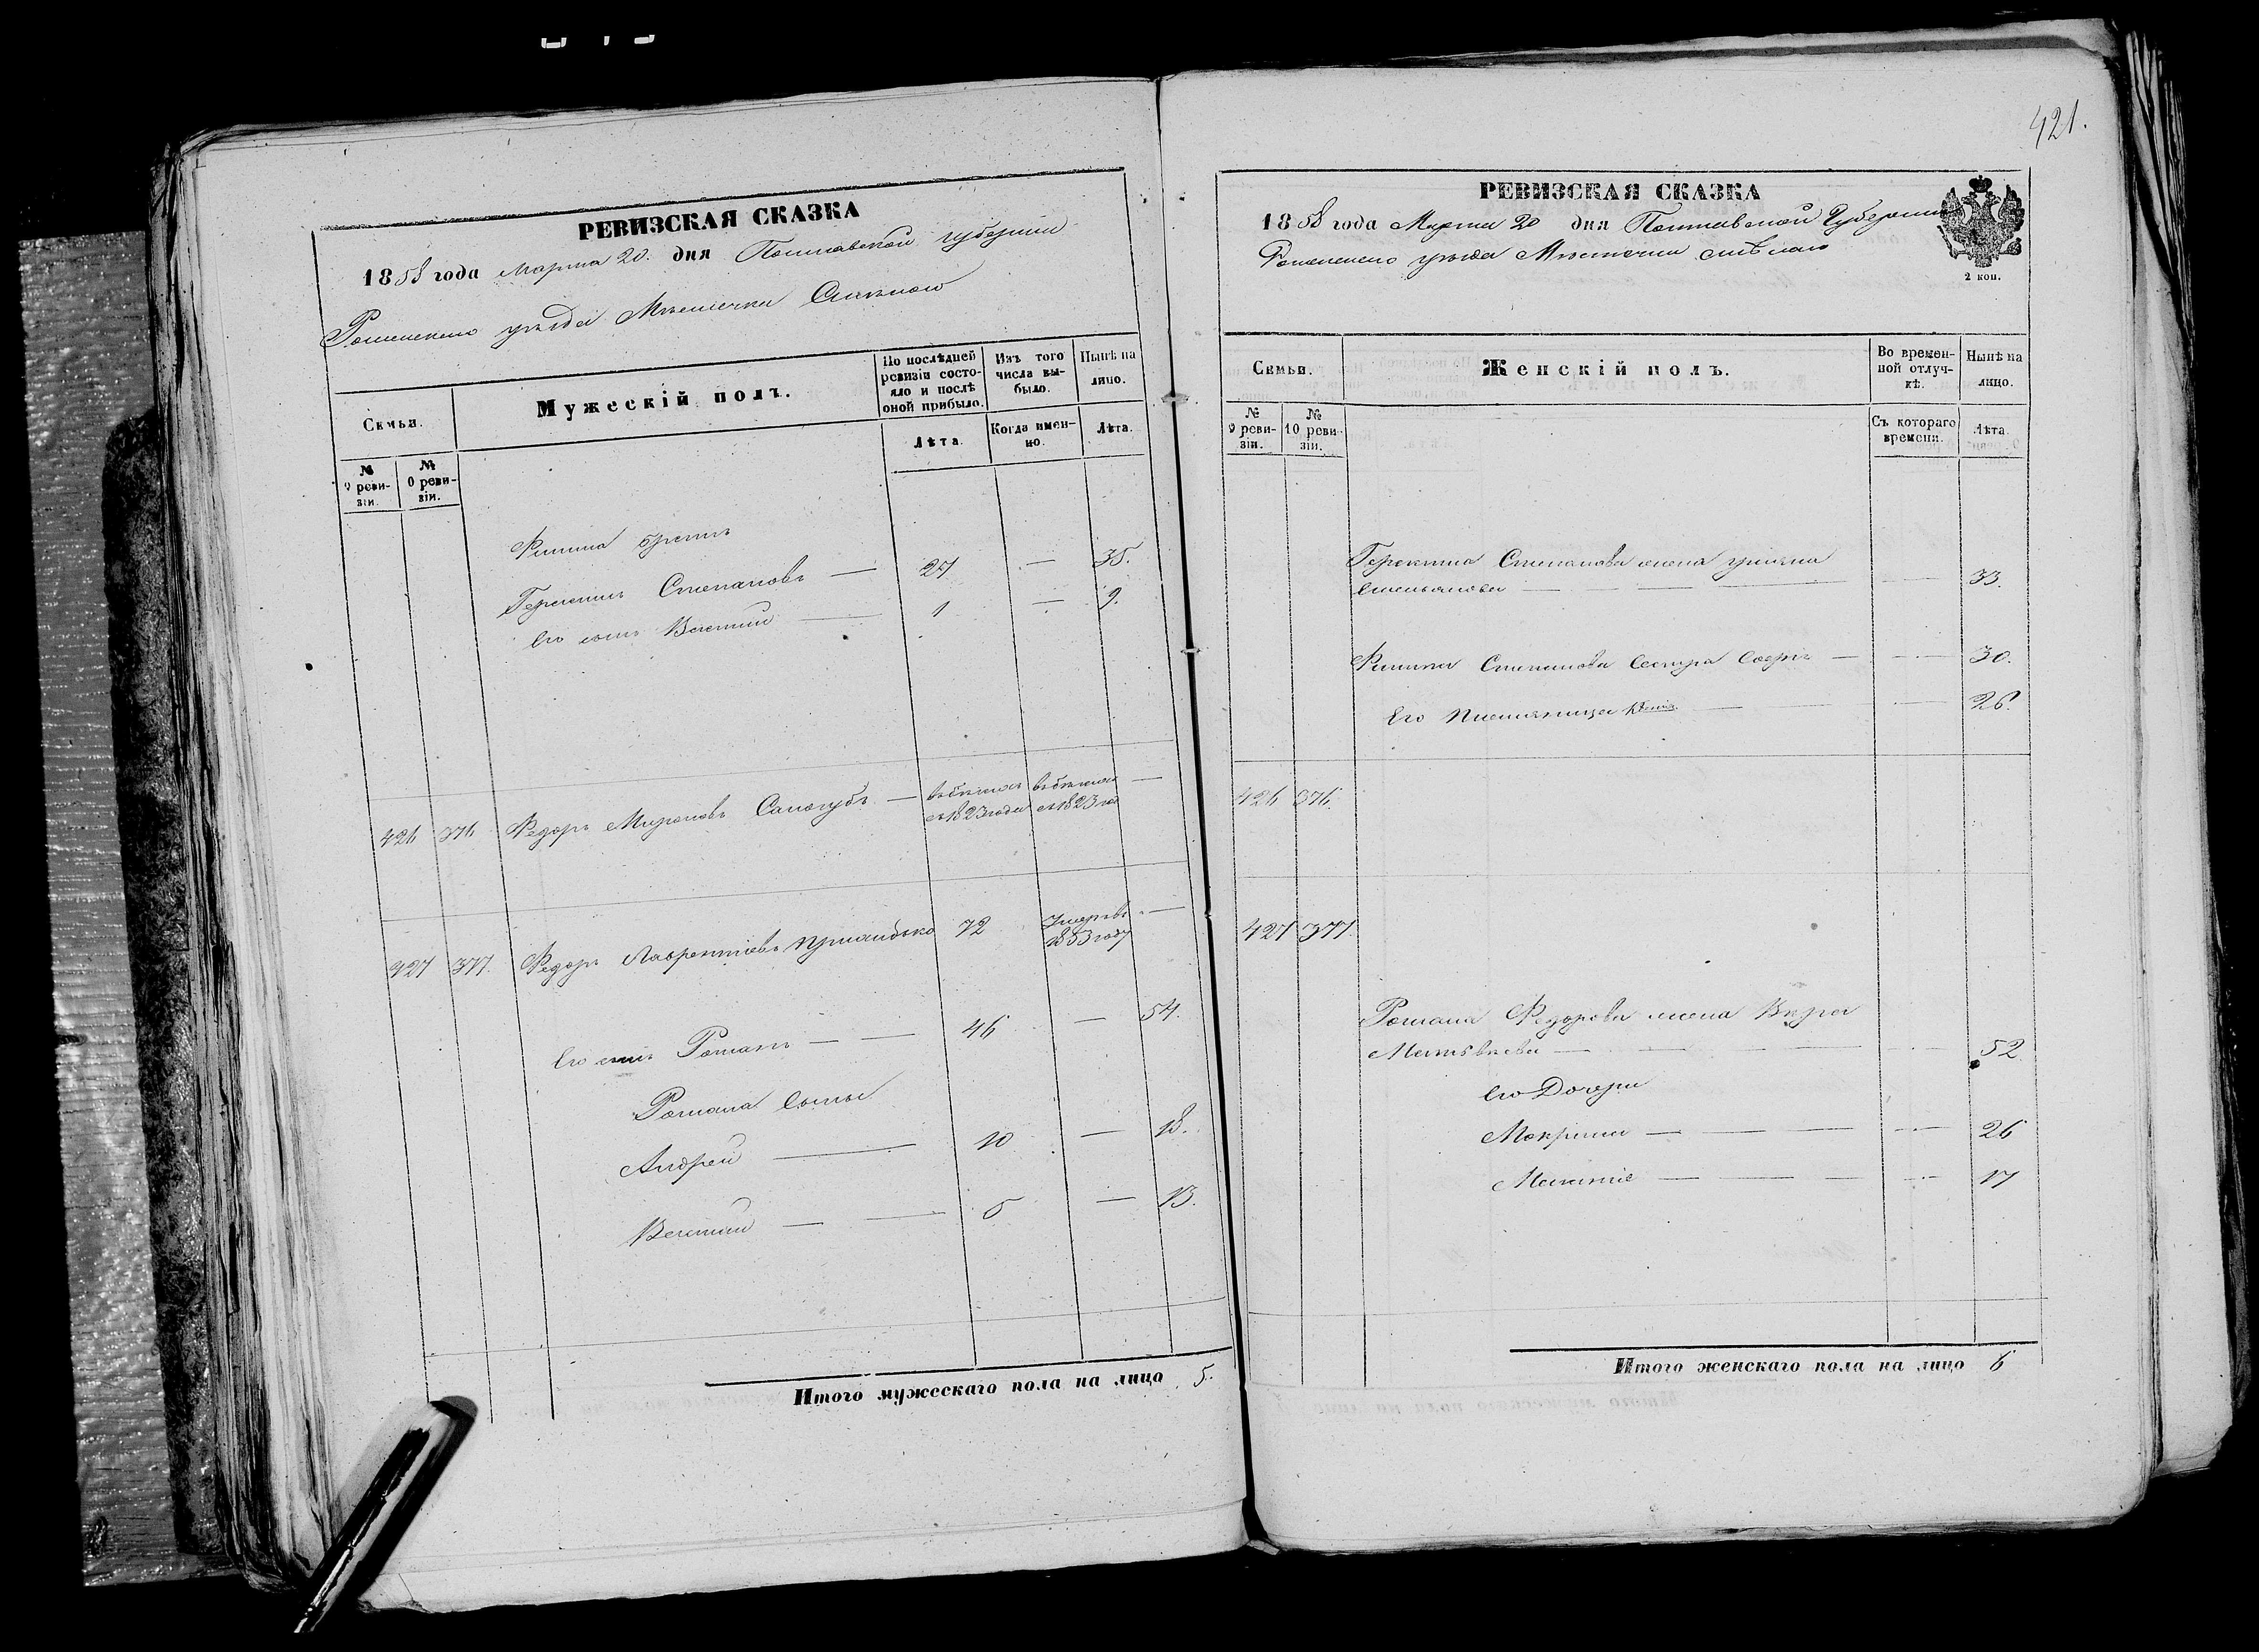 421.
РЕВИЗСКАЯ СКАЗКА
1858 года Марта 20. дня Полтавской губернии
Роменскаго уѣзда Мѣстечка Смѣлаго
Семьи.
Мужескій полъ.
По послѣдней ревизіи состояло и послѣ оной прибыло.
Изъ того числа выбыло.
Нынѣ на лицо.
№ 9 ревизіи.
№ 0 ревизіи.
Лѣта.
Когда именно.
Лѣта.
Степановъ — 27 — 35.
Его сынъ — 1 — 9.
426 376 Федоръ Мироновъ Сапогубъ — въ бѣгахъ съ 1823 года въ бѣгахъ съ 1823 —
427 377. Федоръ Лаврентіевъ 72 Умеръ въ 1853 году —
Его сынъ Романъ — — 46 — 54.
Романа сыны
Андрей — 10 — 18.
— — 5 — 13.
Итого мужескаго пола на лицо 5.
РЕВИЗСКАЯ СКАЗКА
1858 года Марта 20 дня Полтавской Губерніи
Роменскаго уѣзда Мѣстечка Смѣлаго
2 коп.
Семьи.
Женскій полъ.
Во временной отлучкѣ.
Нынѣ на лицо.
№ 9 ревизіи.
№ 10 ревизіи.
Съ котораго времени.
Лѣта.
Степанова жена
— — — — — 33.
Степанова сестра — — 30.
Его племянница — — 26.
426 376.
427 377.
Романа Федорова жена
Матвѣева — — — — 52
Его Дочери
— — — — 26
— — — — 17
Итого женскаго пола на лицо 6